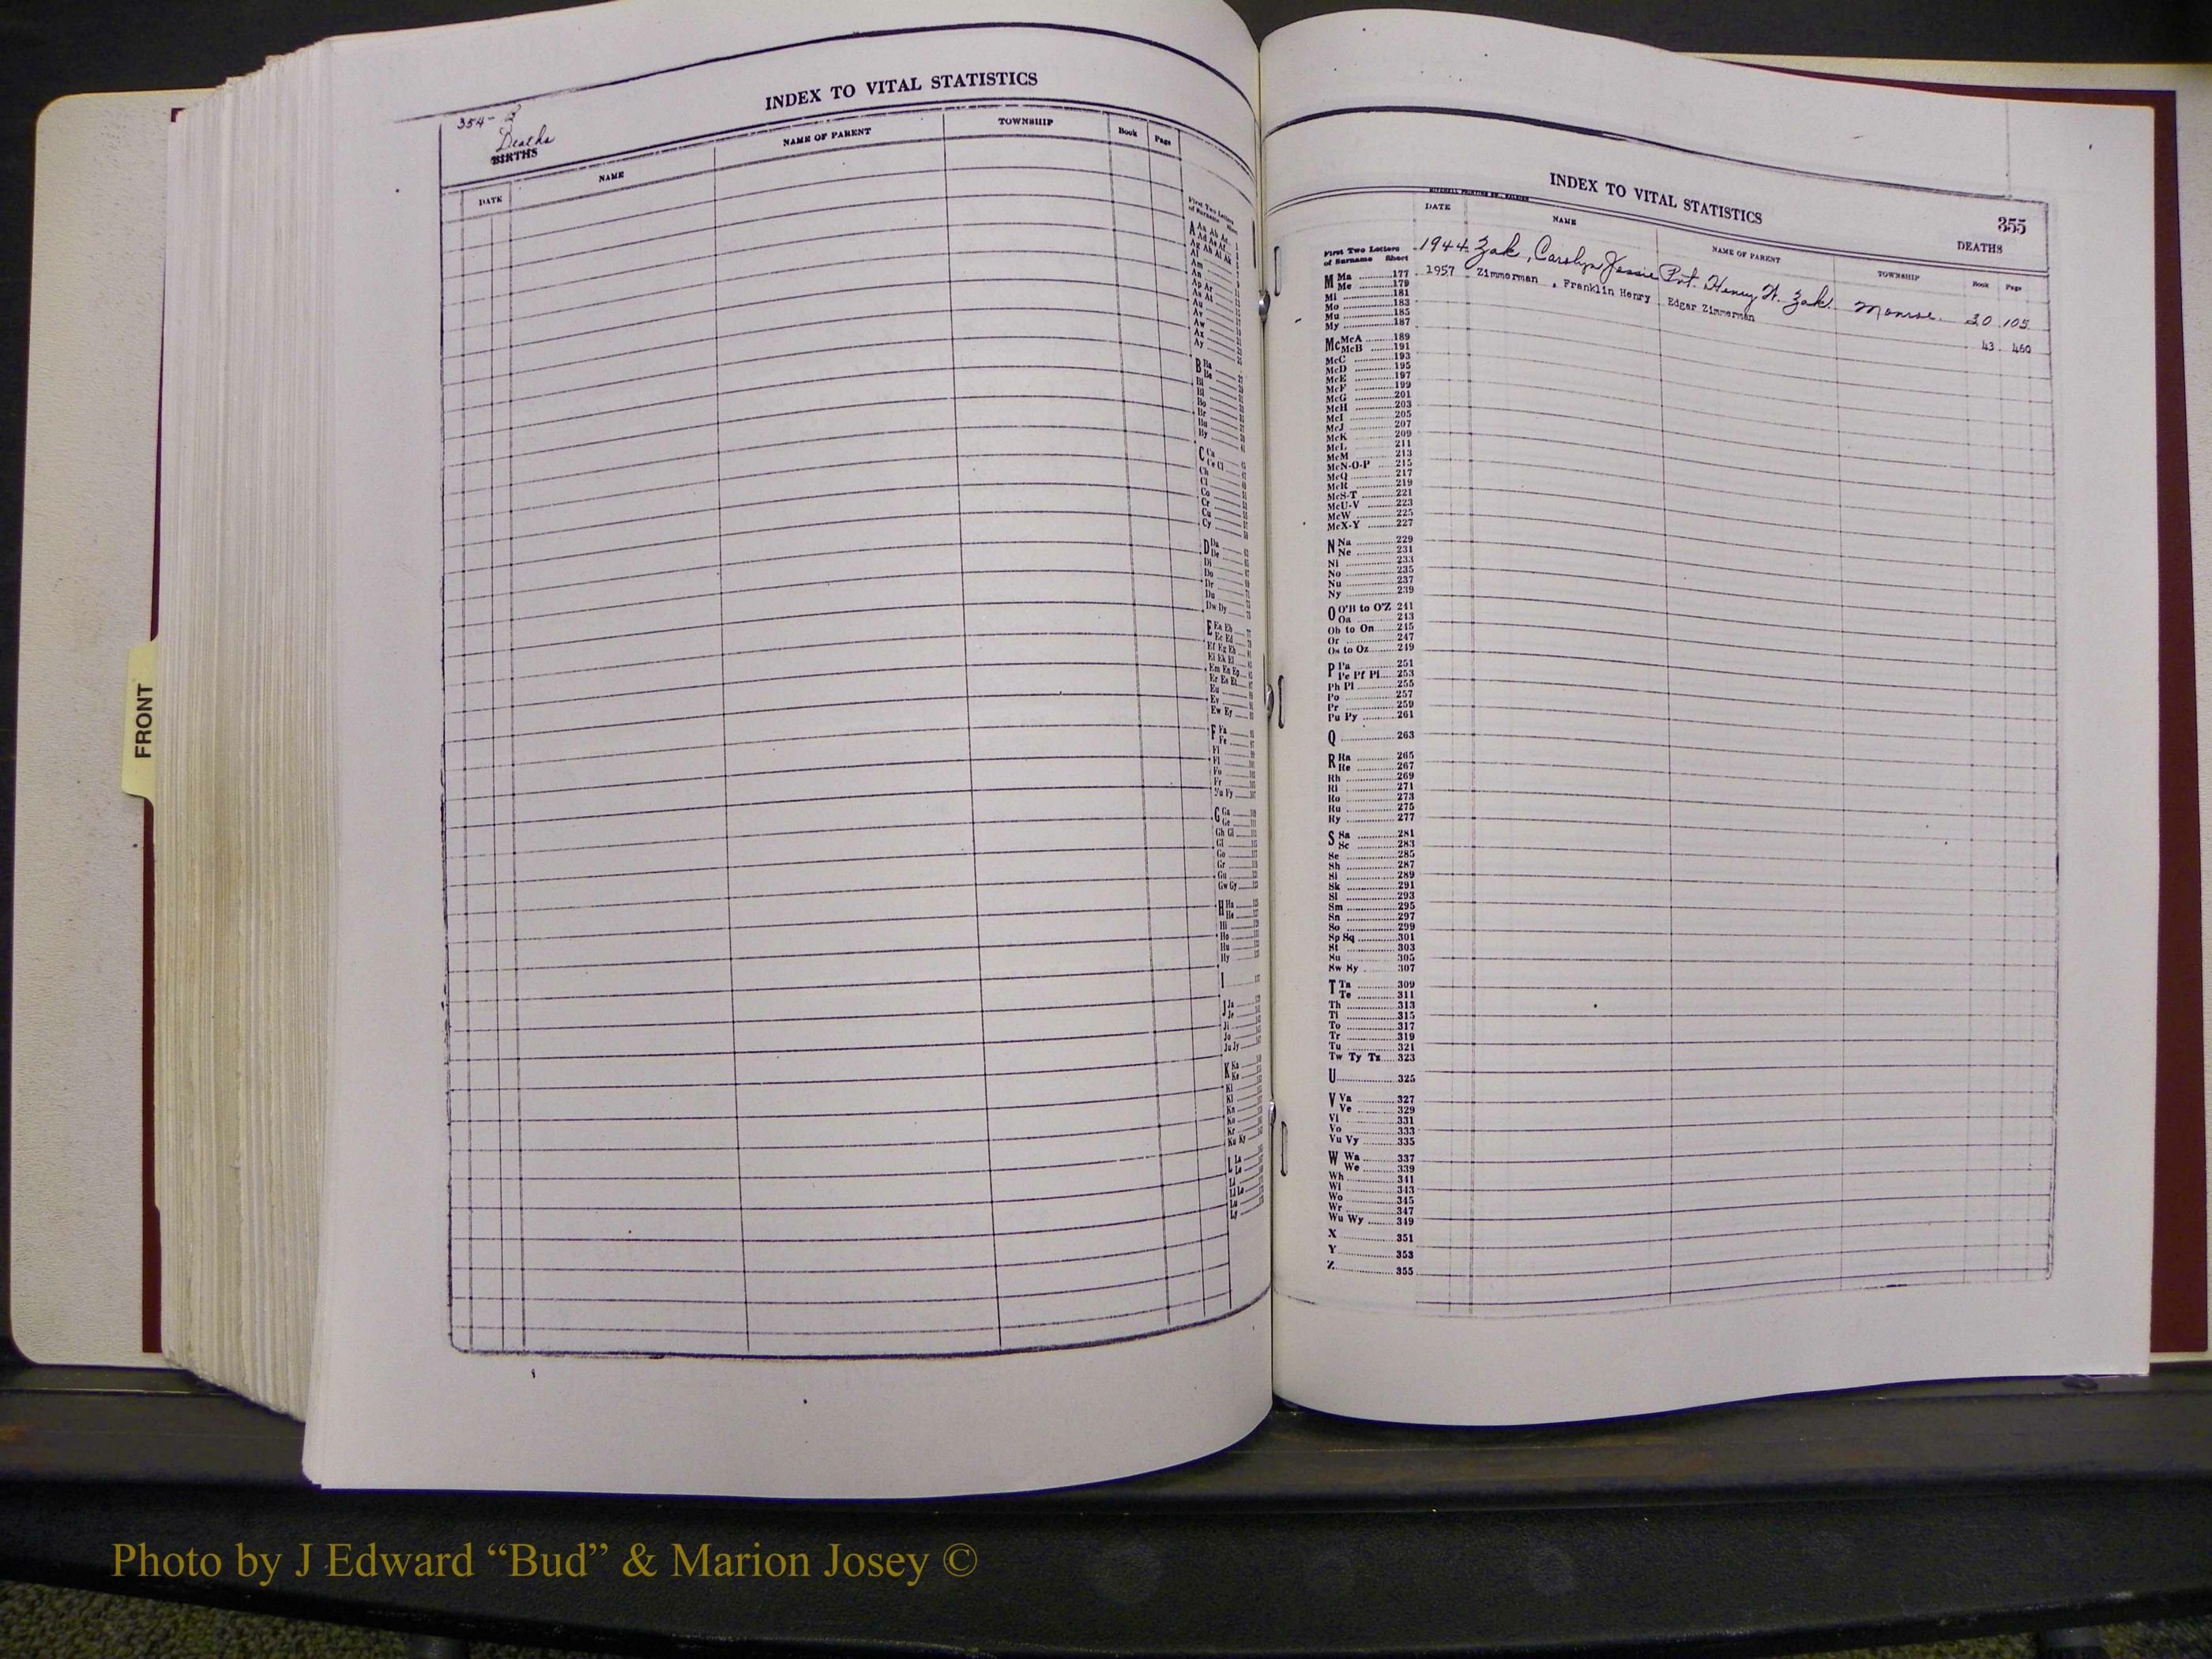 INDEX TO VITAL STATISTICS
354-
Deaths
BIRTHS
DATE NAME NAME OF PARENT TOWNSHIP Book Page
First Two Letters
of Surname Sheet
A Aa Ab Ac
Ad Ae Af
Ag Ah Ai Ak
Al
Am
An
Ap Ar
As At
Au
Av
Aw
Ax
Ay
B Ba
Be
Bi
Bl
Bo
Br
Bu
By
C Ca
Ce Ci
Ch
Cl
Co
Cr
Cu
Cy
D Da
De
Di
Do
Dr
Du
Dw Dy
E Ea Eb
Ec Ed
Ef Eg Eh
Ei Ek El
Em En Ep
Er Es Et
Eu
Ev
Ew Ey
F Fa
Fe
Fi
Fl
Fo
Fr
Fu Fy
G Ga
Ge
Gh Gi
Gl
Go
Gr
Gu
Gw Gy
H Ha
He
Hi
Ho
Hu
Hy
I
J Ja
Je
Ji
Jo
Ju Jy
K Ka
Ke
Ki
Kl
Kn
Ko
Kr
Ku Ky
L La
Le
Li
Ll Lo
Lu
Ly
INDEX TO VITAL STATISTICS
355
DEATHS
DATE NAME NAME OF PARENT TOWNSHIP Book Page
1944 Zak, Carolyn Jessie Pvt. Henry W. Zak. Monroe. 20 105
1957 Zimmerman , Franklin Henry Edgar Zimmerman 43 460
First Two Letters
of Surname Sheet
M Ma 177
Me 179
Mi 181
Mo 183
Mu 185
My 187
Mc McA 189
McB 191
McC 193
McD 195
McE 197
McF 199
McG 201
McH 203
McI 205
McJ 207
McK 209
McL 211
McM 213
McN-O-P 215
McQ 217
McR 219
McS-T 221
McU-V 223
McW 225
McX-Y 227
N Na 229
Ne 231
Ni 233
No 235
Nu 237
Ny 239
O O'B to O'Z 241
Oa 243
Ob to On 245
Or 247
Os to Oz 249
P Pa 251
Pe Pf Pl 253
Ph Pi 255
Po 257
Pr 259
Pu Py 261
Q 263
R Ra 265
Re 267
Rh 269
Ri 271
Ro 273
Ru 275
Ry 277
S Sa 281
Sc 283
Se 285
Sh 287
Si 289
Sk 291
Sl 293
Sm 295
Sn 297
So 299
Sp Sq 301
St 303
Su 305
Sw Sy 307
T Ta 309
Te 311
Th 313
Ti 315
To 317
Tr 319
Tu 321
Tw Ty Tz 323
U 325
V Va 327
Ve 329
Vi 331
Vo 333
Vu Vy 335
W Wa 337
We 339
Wh 341
Wi 343
Wo 345
Wr 347
Wu Wy 349
X 351
Y 353
Z 355
FRONT
Photo by J Edward “Bud” & Marion Josey ©